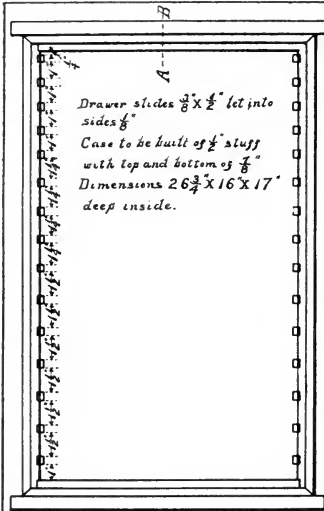 B
A
Drawer slides 3/8" X 1/2" let into
sides 1/8"
Case to be built of 1/2" stuff
with top and bottom of 7/8"
Dimensions 26 3/4" X 16" X 17"
deep inside.